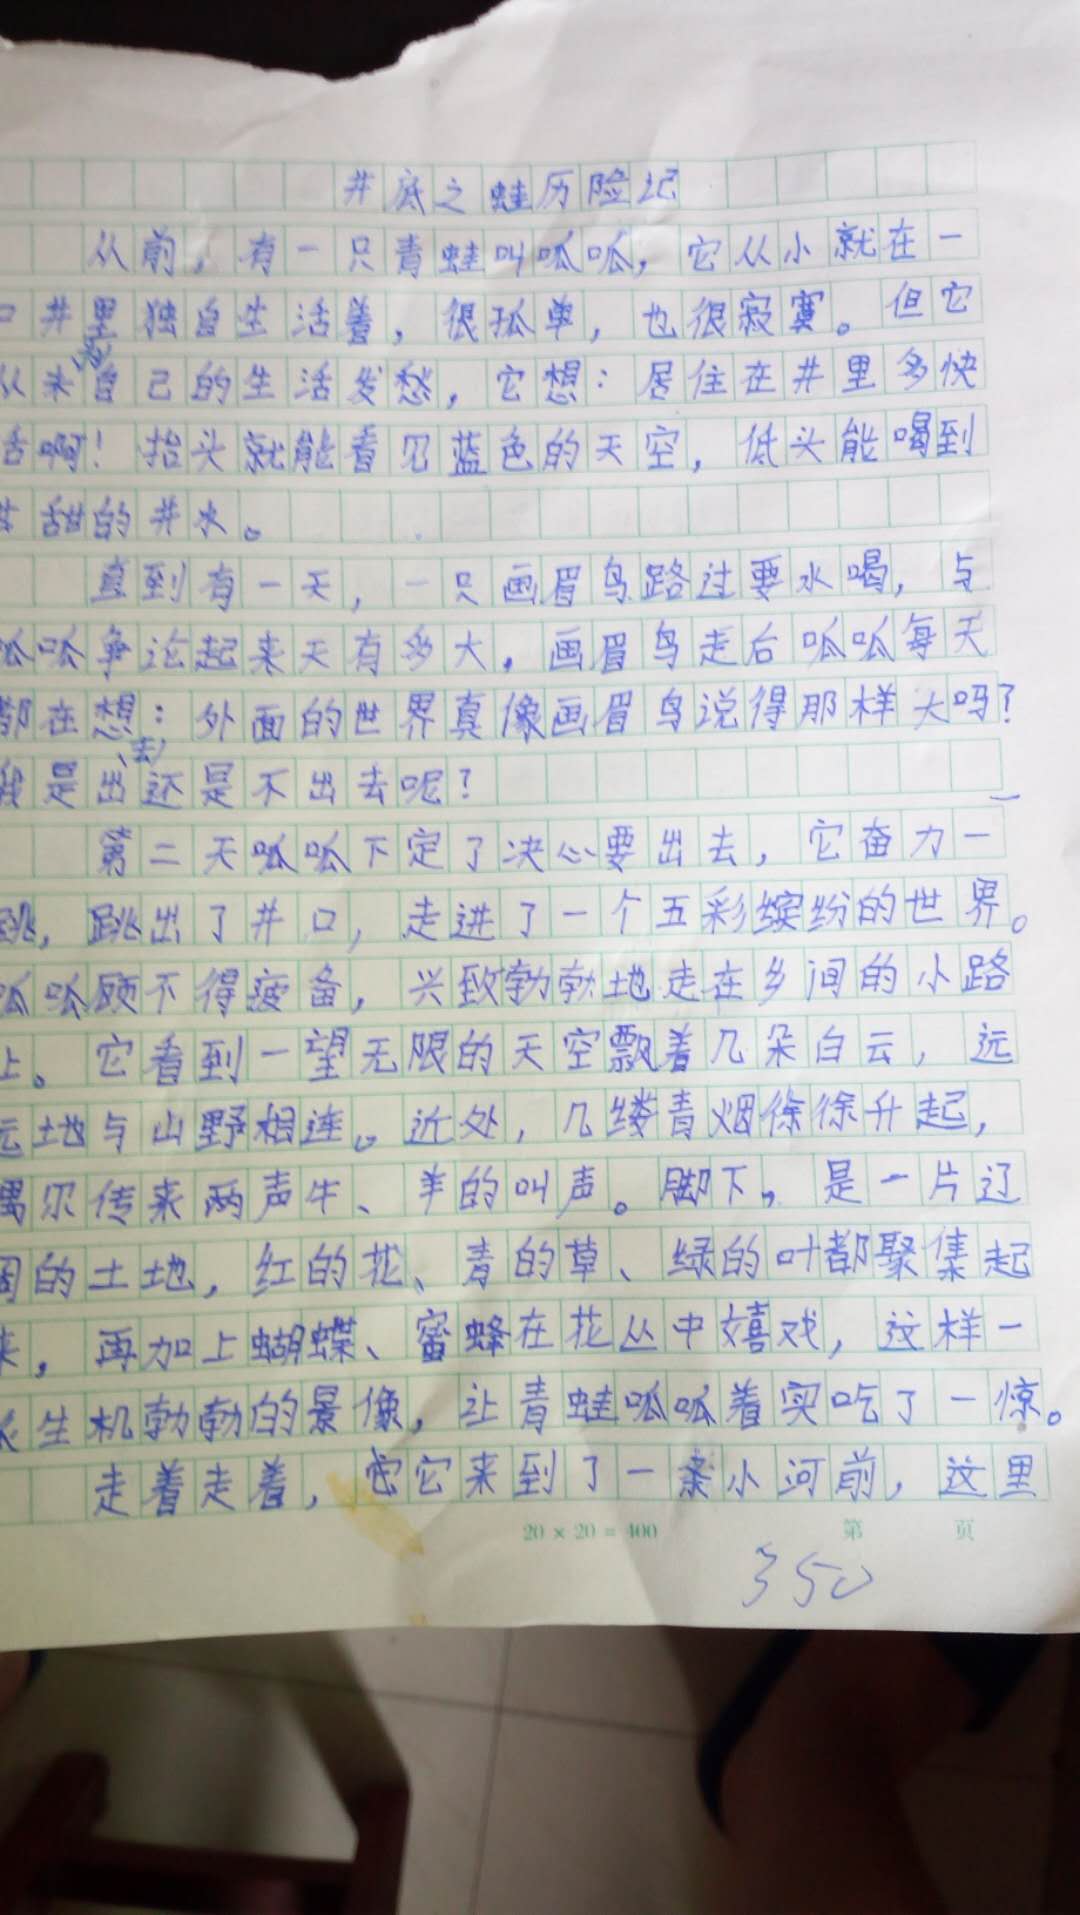 井底之蛙历险记
从前，有一只青蛙叫呱呱，它从小就在一
口井里独自生活着，很孤单，也很寂寞。但它
从来为自己的生活发愁，它想：居住在井里多快
活啊！抬头就能看见蓝色的天空，低头能喝到
甘甜的井水。
直到有一天，一只画眉鸟路过要水喝，与
呱呱争论起来天有多大，画眉鸟走后呱呱每天
都在想：外面的世界真像画眉鸟说得那样大吗？
我是出去还是不出去呢？
第二天呱呱下定了决心要出去，它奋力一
跳，跳出了井口，走进了一个五彩缤纷的世界。
呱呱顾不得疲备，兴致勃勃地走在乡间的小路
上。它看到一望无限的天空飘着几朵白云，远
远地与山野相连。近处，几缕青烟徐徐升起，
偶尔传来两声牛、羊的叫声。脚下，是一片辽
阔的土地，红的花、青的草、绿的叶都聚集起
来，再加上蝴蝶、蜜蜂在花丛中嬉戏，这样一
派生机勃勃的景像，让青蛙呱呱着实吃了一惊。
走着走着，它来到了一条小河前，这里
20×20=400 第 页
350